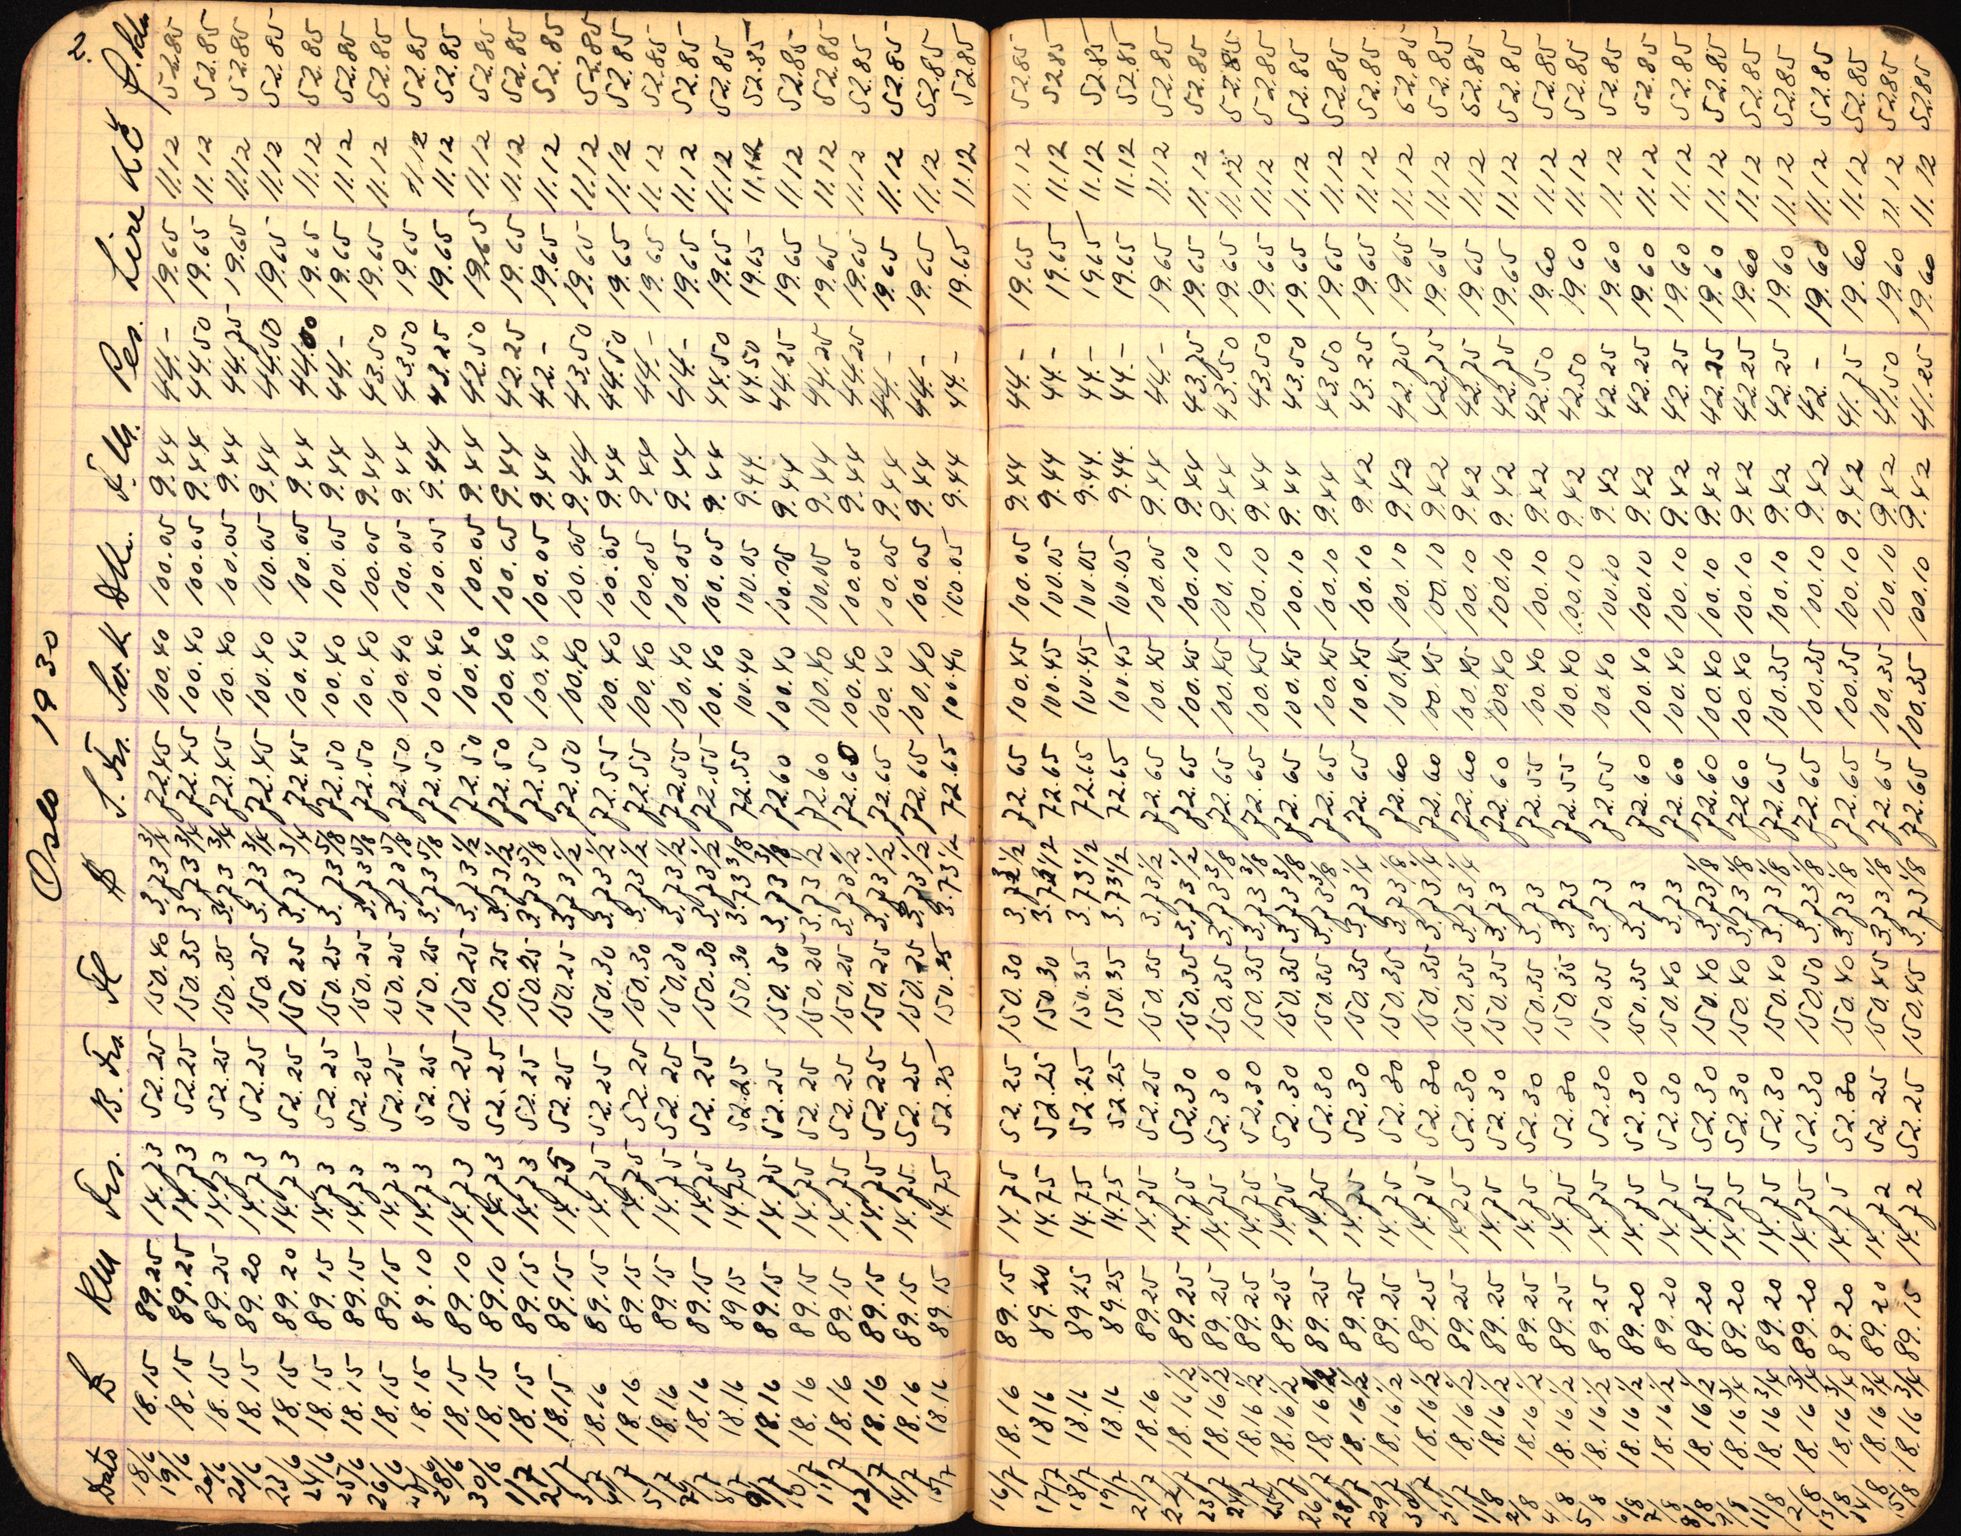 2.
Oslo 1930
Dato £ RM Frs. B. Frs Fl $ S. Frs. Sv.K DKr. F.M. Pes. Lire Kč Ö.Sch.
18/6 18.15 89.25 14.73 52.25 150.40 3.73 3/4 72.45 100.40 100.05 9.44 44.- 19.65 11.12 52.85
19/6 18.15 89.25 14.73 52.25 150.35 3.73 3/4 72.45 100.40 100.05 9.44 44.50 19.65 11.12 52.85
20/6 18.15 89.25 14.73 52.25 150.35 3.73 3/4 72.45 100.40 100.05 9.44 44.75 19.65 11.12 52.85
21/6 18.15 89.20 14.73 52.25 150.25 3.73 3/4 72.45 100.40 100.05 9.44 44.50 19.65 11.12 52.85
23/6 18.15 89.20 14.73 52.25 150.25 3.73 3/4 72.45 100.40 100.05 9.44 44.00 19.65 11.12 52.85
24/6 18.15 89.15 14.73 52.25 150.25 3.73 5/8 72.50 100.40 100.05 9.44 44.- 19.65 11.12 52.85
25/6 18.15 89.15 14.73 52.25 150.25 3.73 5/8 72.50 100.40 100.05 9.44 43.50 19.65 11.12 52.85
26/6 18.15 89.15 14.73 52.25 150.25 3.73 5/8 72.50 100.40 100.05 9.44 43.50 19.65 11.12 52.85
27/6 18.15 89.10 14.73 52.25 150.25 3.73 5/8 72.50 100.40 100.05 9.44 43.25 19.65 11.12 52.85
28/6 18.15 89.10 14.73 52.25 150.25 3.73 1/2 72.50 100.40 100.05 9.44 42.50 19.65 11.12 52.85
30/6 18.15 89.10 14.73 52.25 150.25 3.73 1/2 72.50 100.40 100.05 9.44 42.25 19.65 11.12 52.85
1/7 18.15 89.15 14.73 52.25 150.25 3.73 5/8 72.50 100.40 100.05 9.44 42.- 19.65 11.12 52.85
2/7 18.15 89.15 14.75 52.25 150.25 3.73 1/2 72.50 100.40 100.05 9.44 43.50 19.65 11.12 52.85
3/7 18.16 89.15 14.75 52.25 150.30 3.73 1/2 72.55 100.40 100.05 9.44 44.50 19.65 11.12 52.85
4/7 18.16 89.15 14.75 52.25 150.30 3.73 1/2 72.55 100.40 100.05 9.44 44.- 19.65 11.12 52.85
5/7 18.16 89.15 14.75 52.25 150.30 3.73 1/2 72.55 100.40 100.05 9.44 44.- 19.65 11.12 52.85
7/7 18.16 89.15 14.75 52.25 150.30 3.73 1/2 72.55 100.40 100.05 9.44 44.50 19.65 11.12 52.85
8/7 18.16 89.15 14.75 52.25 150.30 3.73 3/8 72.55 100.40 100.05 9.44. 44.50 19.65 11.12 52.85
9/7 18.16 89.15 14.75 52.25 150.30 3.73 3/8 72.60 100.40 100.05 9.44 44.25 19.65 11.12 52.85
10/7 18.16 89.15 14.75 52.25 150.25 3.73 1/2 72.60 100.40 100.05 9.44 44.25 19.65 11.12 52.85
11/7 18.16 89.15 14.75 52.25 150.25 3.73 1/2 72.60 100.40 100.05 9.44 44.25 19.65 11.12 52.85
12/7 18.16 89.15 14.75 52.25 150.25 3.73 1/2 72.65 100.40 100.05 9.44 44.- 19.65 11.12 52.85
14/7 18.16 89.15 14.75 52.25 150.25 3.73 1/2 72.65 100.40 100.05 9.44 44.- 19.65 11.12 52.85
15/7 18.16 89.15 14.75 52.25 150.25 3.73 1/2 72.65 100.40 100.05 9.44 44.- 19.65 11.12 52.85
16/7 18.16 89.15 14.75 52.25 150.30 3.73 1/2 72.65 100.45 100.05 9.44 44.- 19.65 11.12 52.85
17/7 18.16 89.20 14.75 52.25 150.30 3.73 1/2 72.65 100.45 100.05 9.44 44.- 19.65 11.12 52.85
18/7 18.16 89.25 14.75 52.25 150.35 3.73 1/2 72.65 100.45 100.05 9.44. 44.- 19.65 11.12 52.85
19/7 18.16 89.25 14.75 52.25 150.35 3.73 1/2 72.65 100.45 100.05 9.44. 44.- 19.65 11.12 52.85
21/7 18.16 89.25 14.75 52.25 150.35 3.73 1/2 72.65 100.45 100.05 9.44 44.- 19.65 11.12 52.85
22/7 18.16 1/2 89.25 14.75 52.30 150.35 3.73 1/2 72.65 100.45 100.10 9.44 43.75 19.65 11.12 52.85
23/7 18.16 1/2 89.25 14.75 52.30 150.35 3.73 3/8 72.65 100.45 100.10 9.44 43.50 19.65 11.12 52.85
24/7 18.16 1/2 89.25 14.75 52.30 150.35 3.73 3/8 72.65 100.45 100.10 9.44 43.50 19.65 11.12 52.85
25/7 18.16 1/2 89.25 14.75 52.30 150.35 3.73 3/8 72.65 100.45 100.10 9.44 43.50 19.65 11.12 52.85
26/7 18.16 1/2 89.25 14.75 52.30 150.35 3.73 3/8 72.65 100.45 100.10 9.44 43.50 19.65 11.12 52.85
28/7 18.16 1/2 89.25 14.75 52.30 150.35 3.73 1/4 72.65 100.45 100.10 9.42 43.25 19.65 11.12 52.85
29/7 18.16 1/2 89.25 14.75 52.30 150.35 3.73 1/8 72.60 100.45 100.10 9.42 42.75 19.65 11.12 52.85
30/7 18.16 1/2 89.25 14.75 52.30 150.35 3.73 1/4 72.60 100.45 100.10 9.42 42.75 19.65 11.12 52.85
31/7 18.16 1/2 89.25 14.75 52.30 150.35 3.73 1/4 72.60 100.45 100.10 9.42 42.75 19.65 11.12 52.85
1/8 18.16 1/2 89.25 14.75 52.30 150.35 3.73 72.60 100.40 100.10 9.42 42.75 19.65 11.12 52.85
2/8 18.16 1/2 89.25 14.75 52.30 150.35 3.73 72.55 100.40 100.10 9.42 42.50 19.60 11.12 52.85
4/8 18.16 1/2 89.25 14.75 52.30 150.35 3.73 72.55 100.40 100.10 9.42 42.50 19.60 11.12 52.85
5/8 18.16 1/2 89.25 14.75 52.30 150.35 3.73 72.55 100.40 100.10 9.42 42.25 19.60 11.12 52.85
6/8 18.16 1/2 89.20 14.75 52.30 150.35 3.73 72.60 100.40 100.10 9.42 42.25 19.60 11.12 52.85
7/8 18.16 1/2 89.20 14.75 52.30 150.40 3.73 72.60 100.40 100.10 9.42 42.25 19.60 11.12 52.85
8/8 18.16 1/2 89.20 14.75 52.30 150.40 3.73 1/8 72.60 100.40 100.10 9.42 42.25 19.60 11.12 52.85
9/8 18.16 3/4 89.20 14.75 52.30 150.40 3.73 1/8 72.60 100.40 100.10 9.42 42.25 19.60 11.12 52.85
11/8 18.16 3/4 89.20 14.75 52.30 150.40 3.73 1/8 72.65 100.35 100.10 9.42 42.25 19.60 11.12 52.85
12/8 18.16 3/4 89.20 14.75 52.30 150.50 3.73 1/8 72.65 100.35 100.10 9.42 42.- 19.60 11.12 52.85
13/8 18.16 3/4 89.20 14.75 52.30 150.40 3.73 1/8 72.65 100.35 100.10 9.42 41.75 19.60 11.12 52.85
14/8 18.16 3/4 89.20 14.72 52.25 150.45 3.73 1/8 72.65 100.35 100.10 9.42 41.50 19.60 11.12 52.85
15/8 18.16 3/4 89.15 14.72 52.25 150.45 3.73 1/8 72.65 100.35 100.10 9.42 41.25 19.60 11.12 52.85